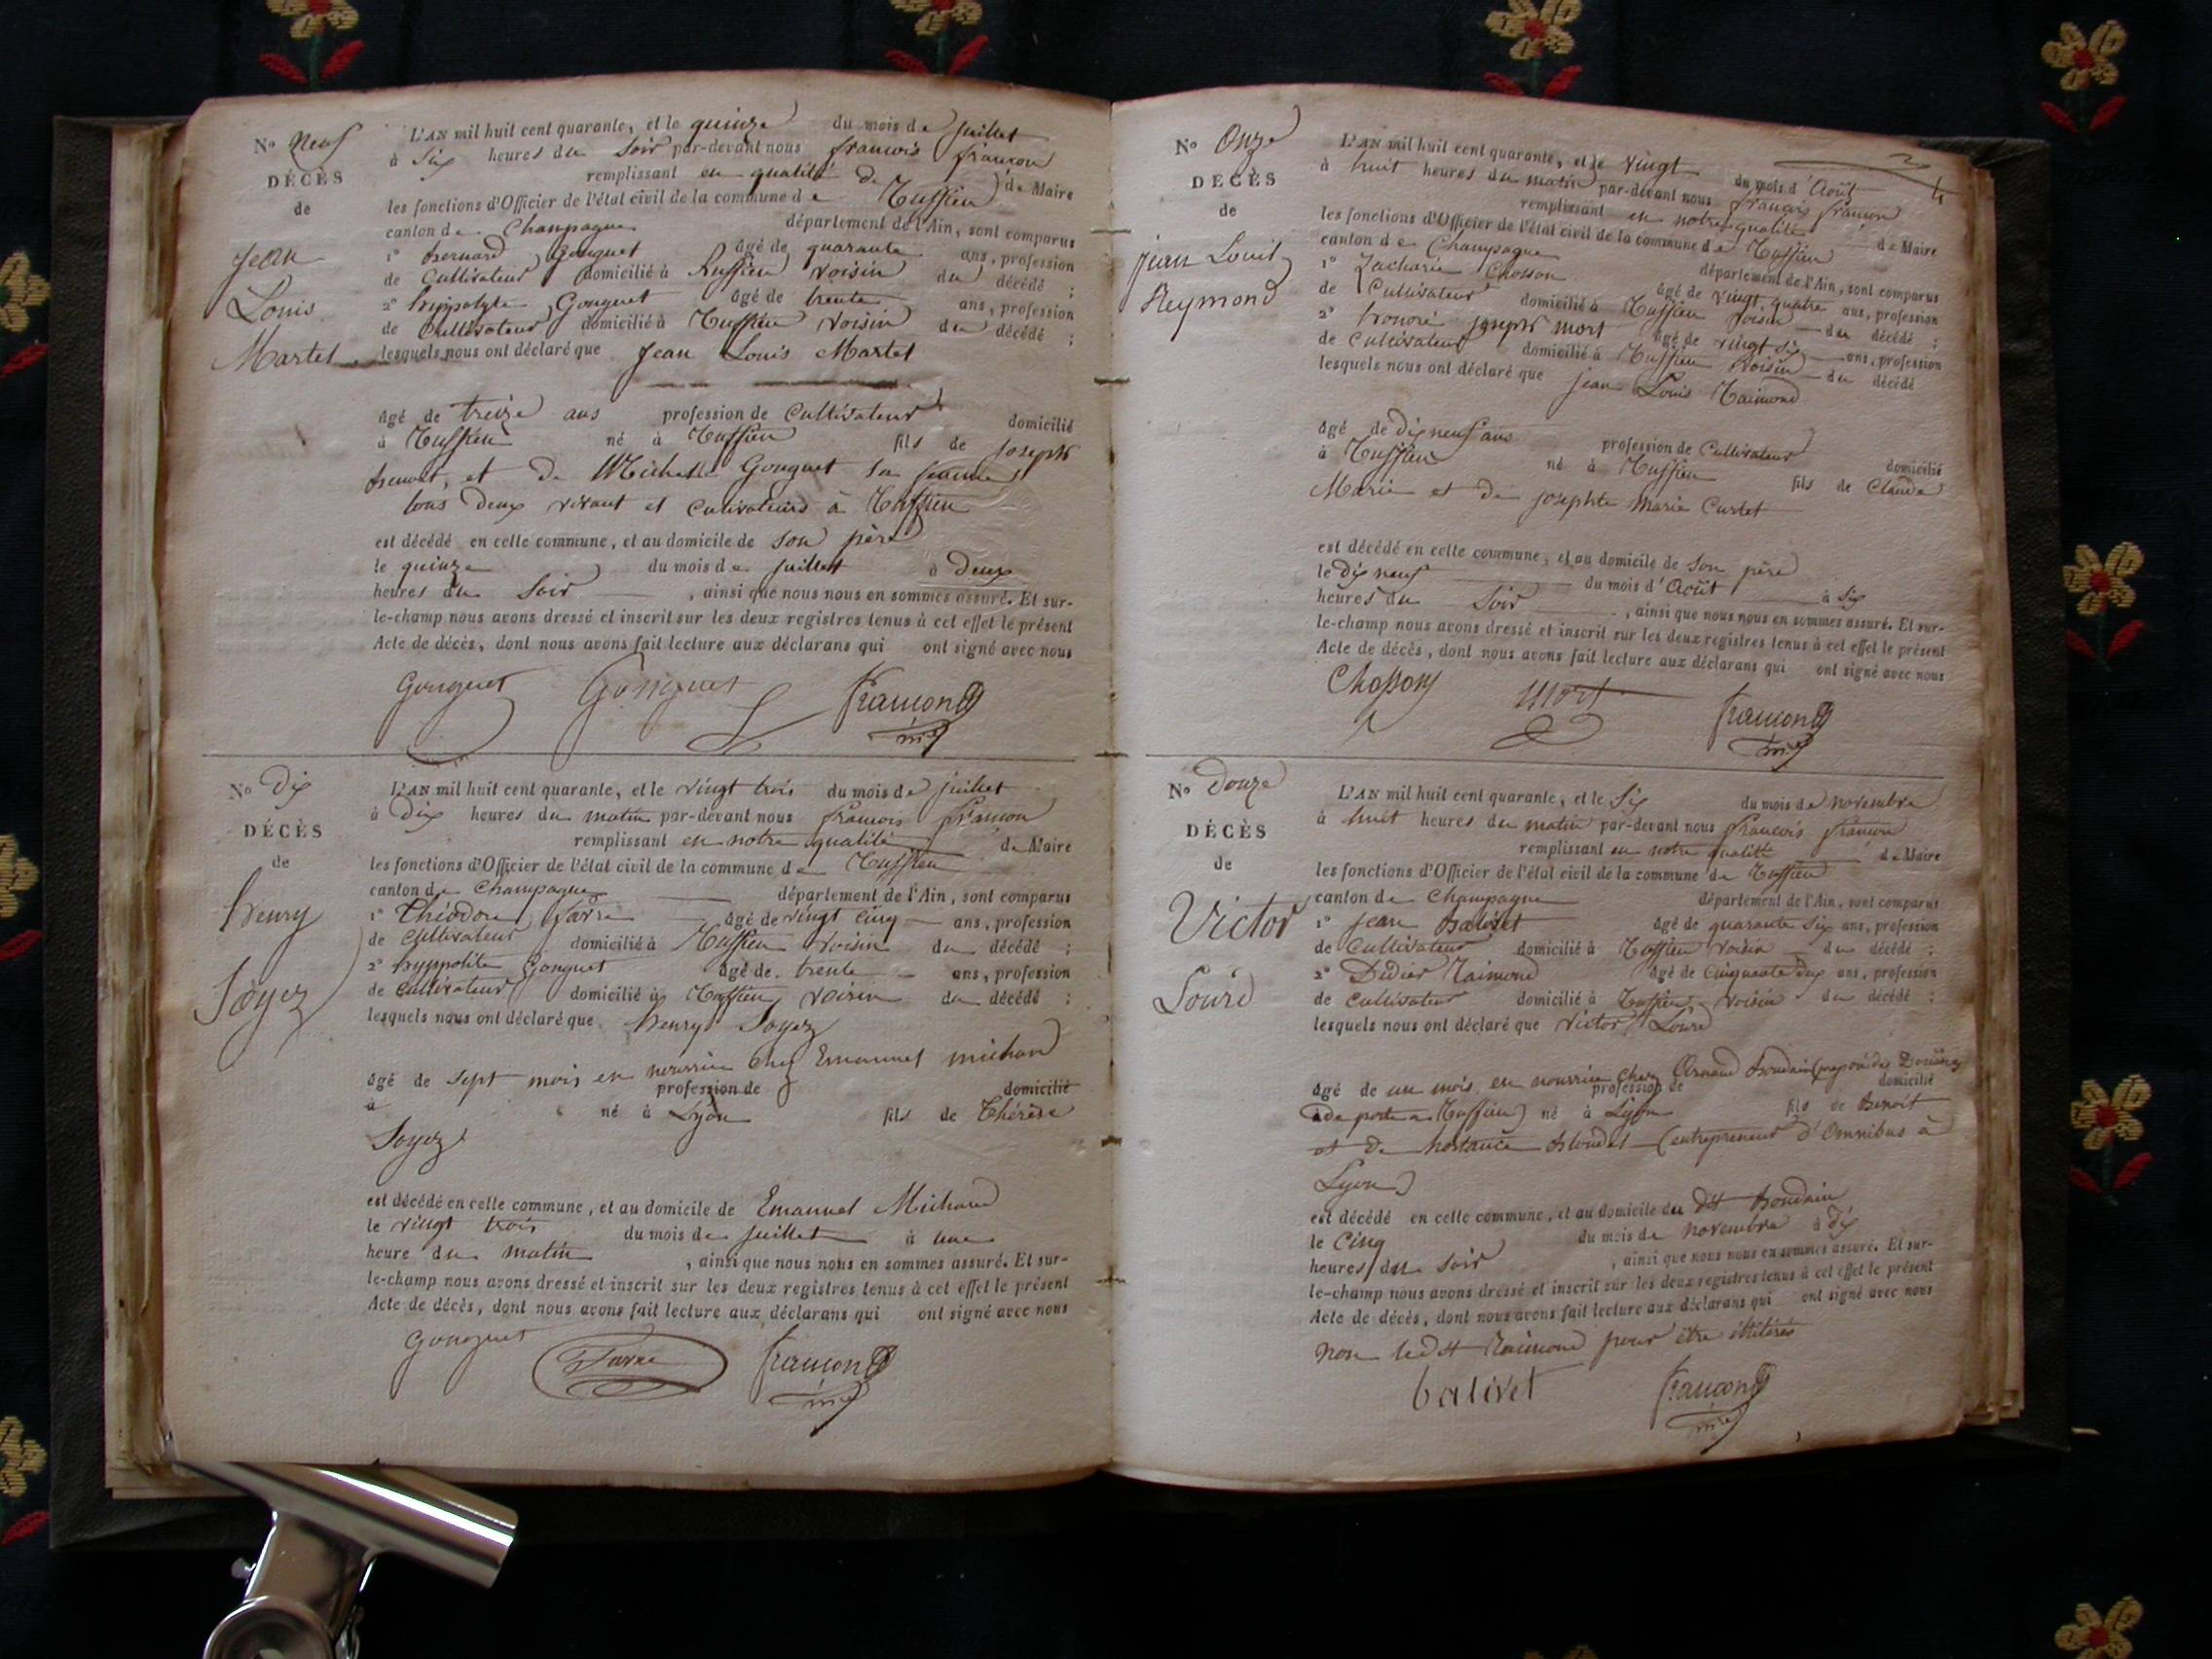 No Neuf
DÉCÈS
de
Jean
Louis
Martel
L'AN mil huit cent quarante, et le quinze du mois de juillet
à Six heures du Soir par-devant nous francois francon
remplissant en qualité de de Maire
les fonctions d'Officier de l'état civil de la commune de Ruffieu
canton de Champagne département de l'Ain, sont comparus
1° bernard Gonguet âgé de quarante ans, profession
de Cultivateur domicilié à Ruffieu voisin du décédé ;
2° hyppolyte Gonguet âgé de trente ans, profession
de Cultivateur domicilié à Ruffieu voisin du décédé ;
lesquels nous ont déclaré que Jean Louis Martel
âgé de treize ans profession de Cultivateur domicilié
à Ruffieu né à Ruffieu fils de joseph
et de Michelle Gonguet sa femme
tous deux vivant et Cultivateurs à Ruffieu
est décédé en celle commune, et au domicile de son père
le quinze du mois de juillet à Deux
heures du Soir , ainsi que nous nous en sommes assuré. Et sur-
le-champ nous avons dressé et inscrit sur les deux registres tenus à cet effet le présent
Acte de décès, dont nous avons fait lecture aux déclarans qui ont signé avec nous
Gonguet Gonguet francon
No Dix
DÉCÈS
de
henry
Soyez
L'AN mil huit cent quarante, et le vingt trois du mois de juillet
à Dix heures du matin par-devant nous francois francon
remplissant en notre qualité de Maire
les fonctions d'Officier de l'état civil de la commune de Ruffieu
canton de Champagne département de l'Ain, sont comparus
1° Théodore favre âgé de vingt cinq ans, profession
de Cultivateur domicilié à Ruffieu voisin du décédé ;
2° hyppolite Gonguet âgé de trente ans, profession
de Cultivateur domicilié à Ruffieu voisin du décédé ;
lesquels nous ont déclaré que henry Soyez
âgé de sept mois en nourrice chez Emanuel michaud
profession de domicilié
à né à Lyon fils de Thérèse
Soyez
est décédé en celle commune, et au domicile de Emanuel Michaud
le vingt trois du mois de juillet à une
heure du matin , ainsi que nous nous en sommes assuré. Et sur-
le-champ nous avons dressé et inscrit sur les deux registres tenus à cet effet le présent
Acte de décès, dont nous avons fait lecture aux déclarans qui ont signé avec nous
Gonguet Favre francon
No Onze
DÉCÈS
de
jean Louis
Reymond
L'AN mil huit cent quarante, et le vingt du mois d'Août
à huit heures du matin par-devant nous françois francon
remplissant en notre qualité de Maire
les fonctions d'Officier de l'état civil de la commune de Ruffieu
canton de Champagne département de l'Ain, sont comparus
1° Zacharie Chosson âgé de vingt quatre ans, profession
de Cultivateur domicilié à Ruffieu voisin du décédé ;
2° honoré joseph mort âgé de vingt six ans, profession
de Cultivateur domicilié à Ruffieu voisin du décédé
lesquels nous ont déclaré que jean Louis Raimond
âgé de dix neuf ans profession de Cultivateur domicilié
à Ruffieu né à Ruffieu fils de Claude
Marie et de josephte Marie Curtet
est décédé en celle commune, et au domicile de son père
le dix neuf du mois d'Août à six
heures du Soir , ainsi que nous nous en sommes assuré. Et sur-
le-champ nous avons dressé et inscrit sur les deux registres tenus à cet effet le présent
Acte de décès, dont nous avons fait lecture aux déclarans qui ont signé avec nous
Chosson Mort francon
No Douze
DÉCÈS
de
Victor
Louré
L'AN mil huit cent quarante, et le Six du mois de novembre
à huit heures du matin par-devant nous francois francon
remplissant en notre qualité de Maire
les fonctions d'Officier de l'état civil de la commune de Ruffieu
canton de Champagne département de l'Ain, sont comparus
1° jean balivet âgé de quarante six ans, profession
de Cultivateur domicilié à Ruffieu voisin du décédé ;
2° Didier Raimond âgé de Cinquante Dix ans, profession
de Cultivateur domicilié à Ruffieu voisin du décédé ;
lesquels nous ont déclaré que victor Louré
âgé de un mois, en nourrice chez Arnaud boudain préposé des Douanes
profession de domicilié
à de poste a Ruffieu) né à Lyon fils de benoit
et de blondel (entrepreneur d'Omnibus à
Lyon)
est décédé en celle commune, et au domicile du dit boudain
le cinq du mois de novembre à dix
heures du soir , ainsi que nous nous en sommes assuré. Et sur-
le-champ nous avons dressé et inscrit sur les deux registres tenus à cet effet le présent
Acte de décès, dont nous avons fait lecture aux déclarans qui ont signé avec nous
non ledit Raimond pour être illitéré
balivet francon